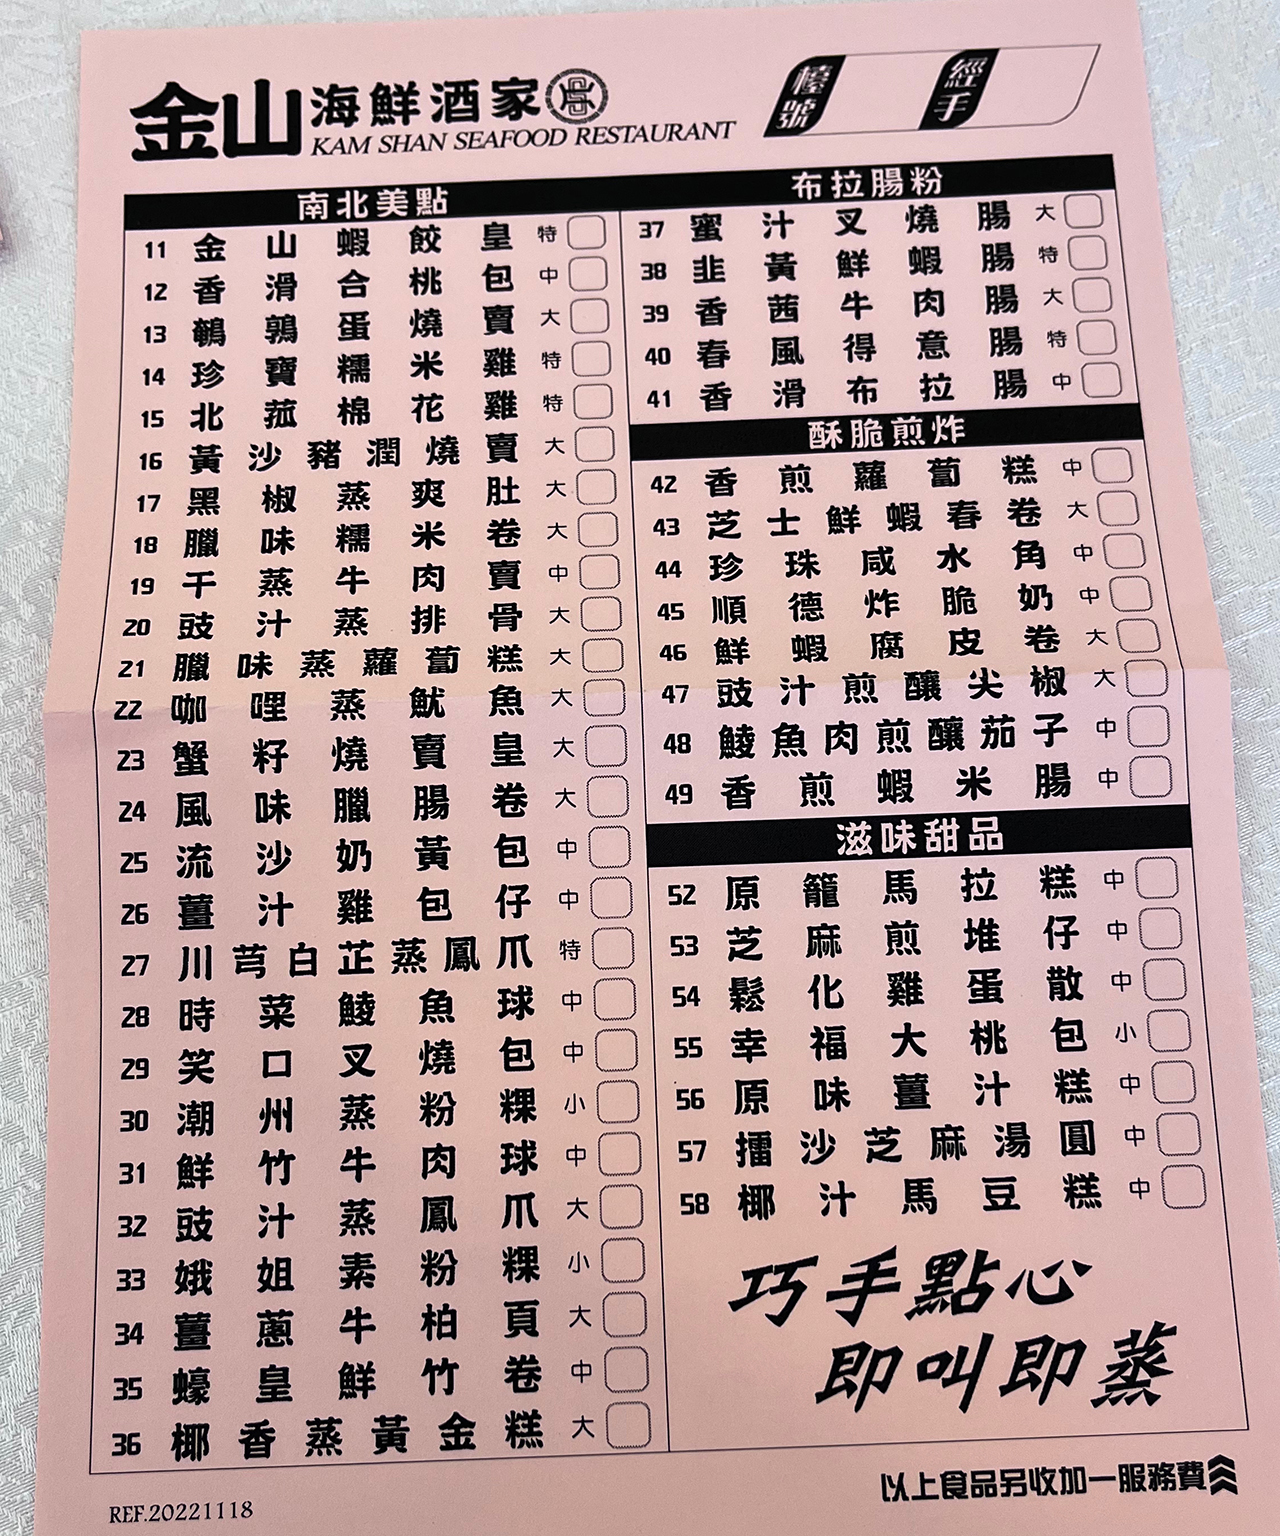 金山海鮮酒家
KAM SHAN SEAFOOD RESTAURANT
檯號
經手
南北美點
11 金山蝦餃皇 特
12 香滑合桃包 中
13 鵪鶉蛋燒賣 大
14 珍寶糯米雞 特
15 北菰棉花雞 特
16 黃沙豬潤燒賣 大
17 黑椒蒸爽肚 大
18 臘味糯米卷 大
19 干蒸牛肉賣 中
20 豉汁蒸排骨 大
21 臘味蒸蘿蔔糕 大
22 咖哩蒸魷魚 大
23 蟹籽燒賣皇 大
24 風味臘腸卷 大
25 流沙奶黃包 中
26 薑汁雞包仔 中
27 川芎白芷蒸鳳爪 特
28 時菜鯪魚球 中
29 笑口叉燒包 中
30 潮州蒸粉粿 小
31 鮮竹牛肉球 中
32 豉汁蒸鳳爪 大
33 娥姐素粉粿 小
34 薑蔥牛柏頁 大
35 蠔皇鮮竹卷 中
36 椰香蒸黃金糕 大
布拉腸粉
37 蜜汁叉燒腸 大
38 韭黃鮮蝦腸 特
39 香茜牛肉腸 大
40 春風得意腸 特
41 香滑布拉腸 中
酥脆煎炸
42 香煎蘿蔔糕 中
43 芝士鮮蝦春卷 大
44 珍珠咸水角 中
45 順德炸脆奶 中
46 鮮蝦腐皮卷 大
47 豉汁煎釀尖椒 大
48 鯪魚肉煎釀茄子 中
49 香煎蝦米腸 中
滋味甜品
52 原籠馬拉糕 中
53 芝麻煎堆仔 中
54 鬆化雞蛋散 中
55 幸福大桃包 小
56 原味薑汁糕 中
57 擂沙芝麻湯圓 中
58 椰汁馬豆糕 中
巧手點心
即叫即蒸
以上食品另收加一服務費
REF.20221118